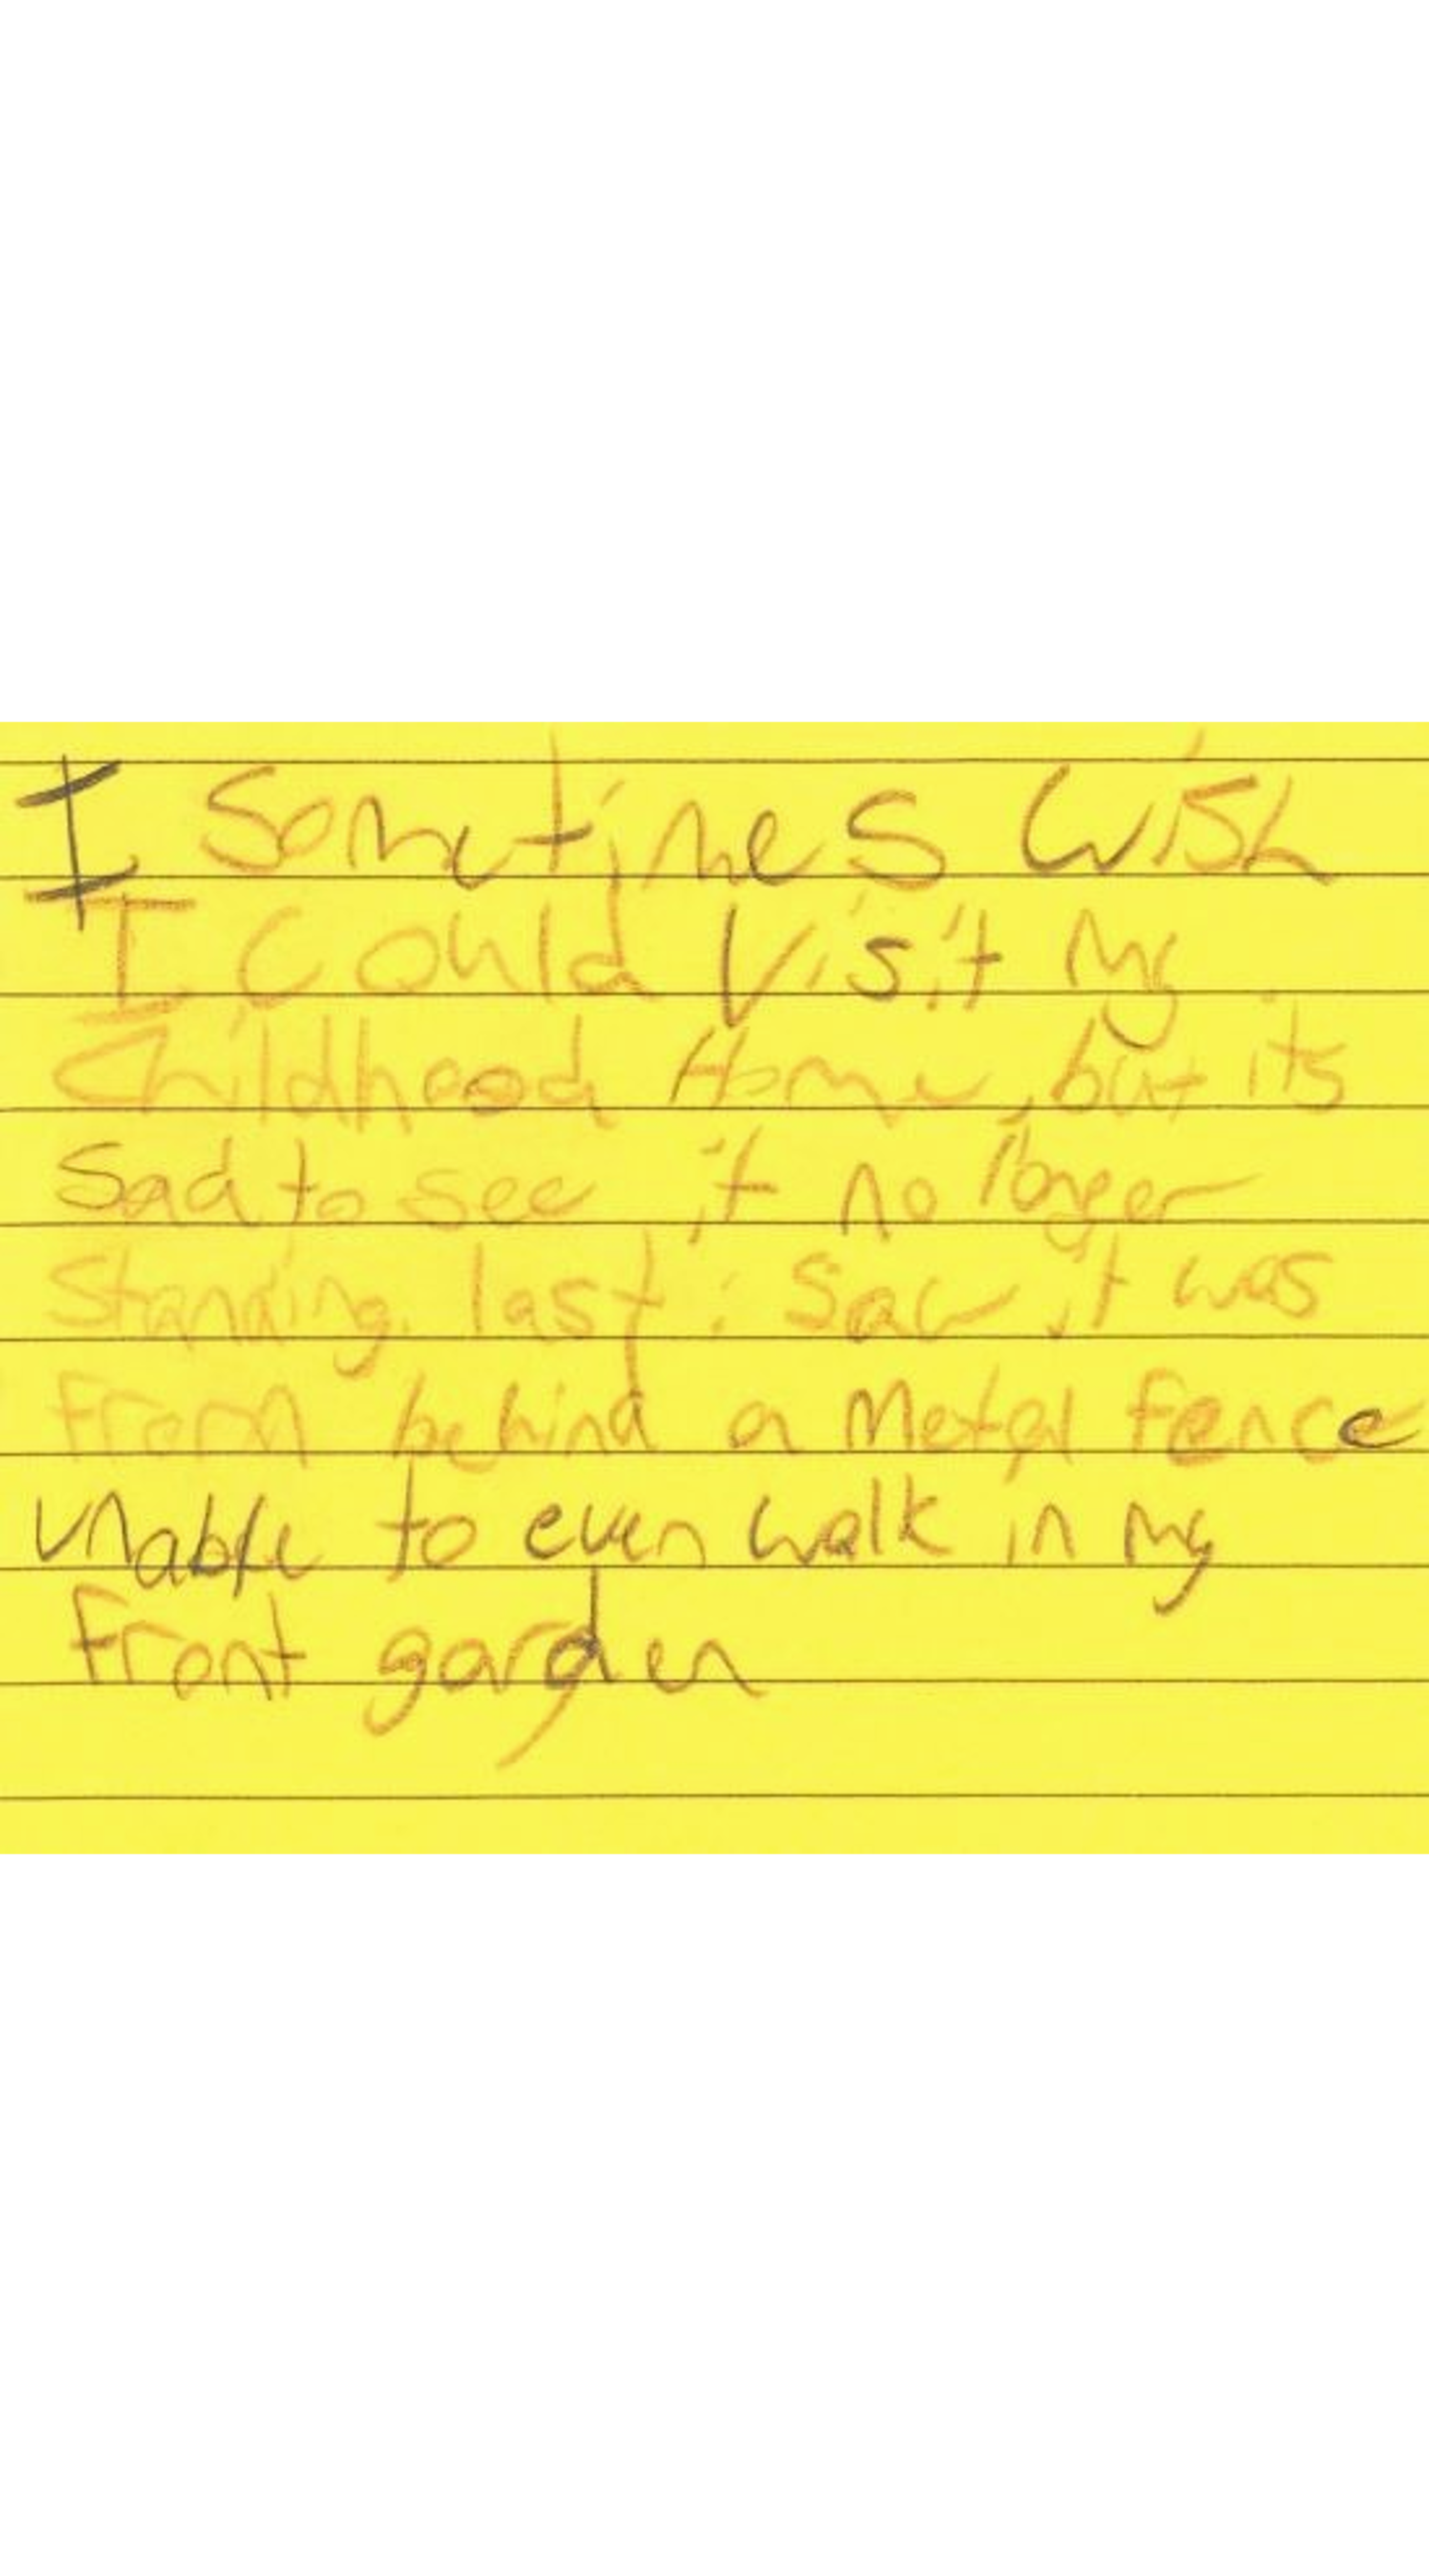 I Sometimes Wish
I Could Visit My
Childhood Home, but its
Sad to see it no longer
Standing. last i Saw it was
From behind a Metal fence
Unable to even walk in my
Front garden